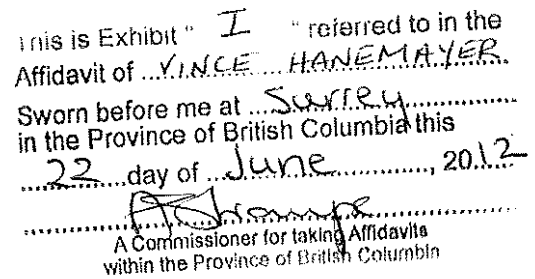 This is Exhibit " I " referred to in the
Affidavit of ...VINCE HANEMAYER
Sworn before me at ...Surrey...
in the Province of British Columbia this
...22...day of ...June..., 2012
A Commissioner for taking Affidavits
within the Province of British Columbia